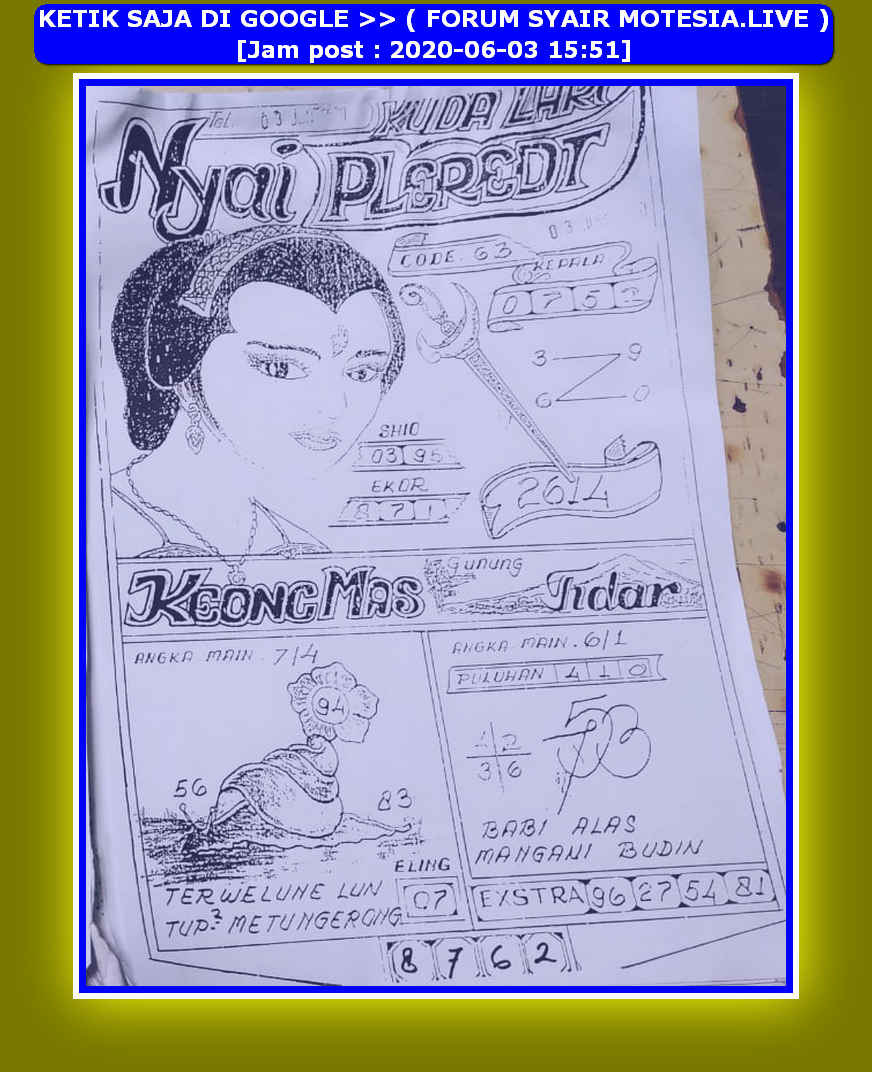 KETIK SAJA DI GOOGLE >> ( FORUM SYAIR MOTESIA.LIVE )
[Jam post : 2020-06-03 15:51]
KUDA LARI
Nyai PLEREDT
CODE. 63
KEPALA
0 7 5 2
3 9
6 0
SHIO
03 95
EKOR
8 7 1
2614
KEONG MAS
gunung
Tidar
ANGKA MAIN. 7/4
94
56
83
ELING
TERWELUNE LUN
TUP² METUNGERONG
07
ANGKA MAIN. 6/1
PULUHAN 4 1 0
4 2
3 6
BABI ALAS
MANGANI BUDIN
EXSTRA 96 27 54 81
8 7 6 2